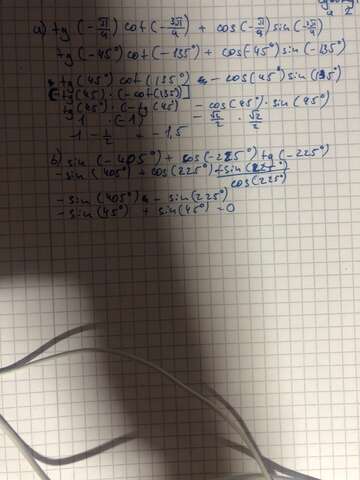 a) tg (-π/4) cot (-3π/4) + cos(-π/4) sin(-3π/4)
tg (-45°) cot (-135°) + cos(-45°) sin (-135°)
tg (45°) cot (135°) - cos (45°) sin (135°)
[-tg(45) · (-cot(135)]
tg(45°) · (-tg(45) - cos(45°) · sin (45°)
1 · (-1) - √2/2 · √2/2
-1 - 1/2 = -1,5
b) sin (-405°) + cos(-225°) tg(-225°)
-sin (405°) + cos (225°) -sin(225°)/cos(225°)
-sin (405°) - sin(225°)
-sin (45°) + sin(45°) = 0